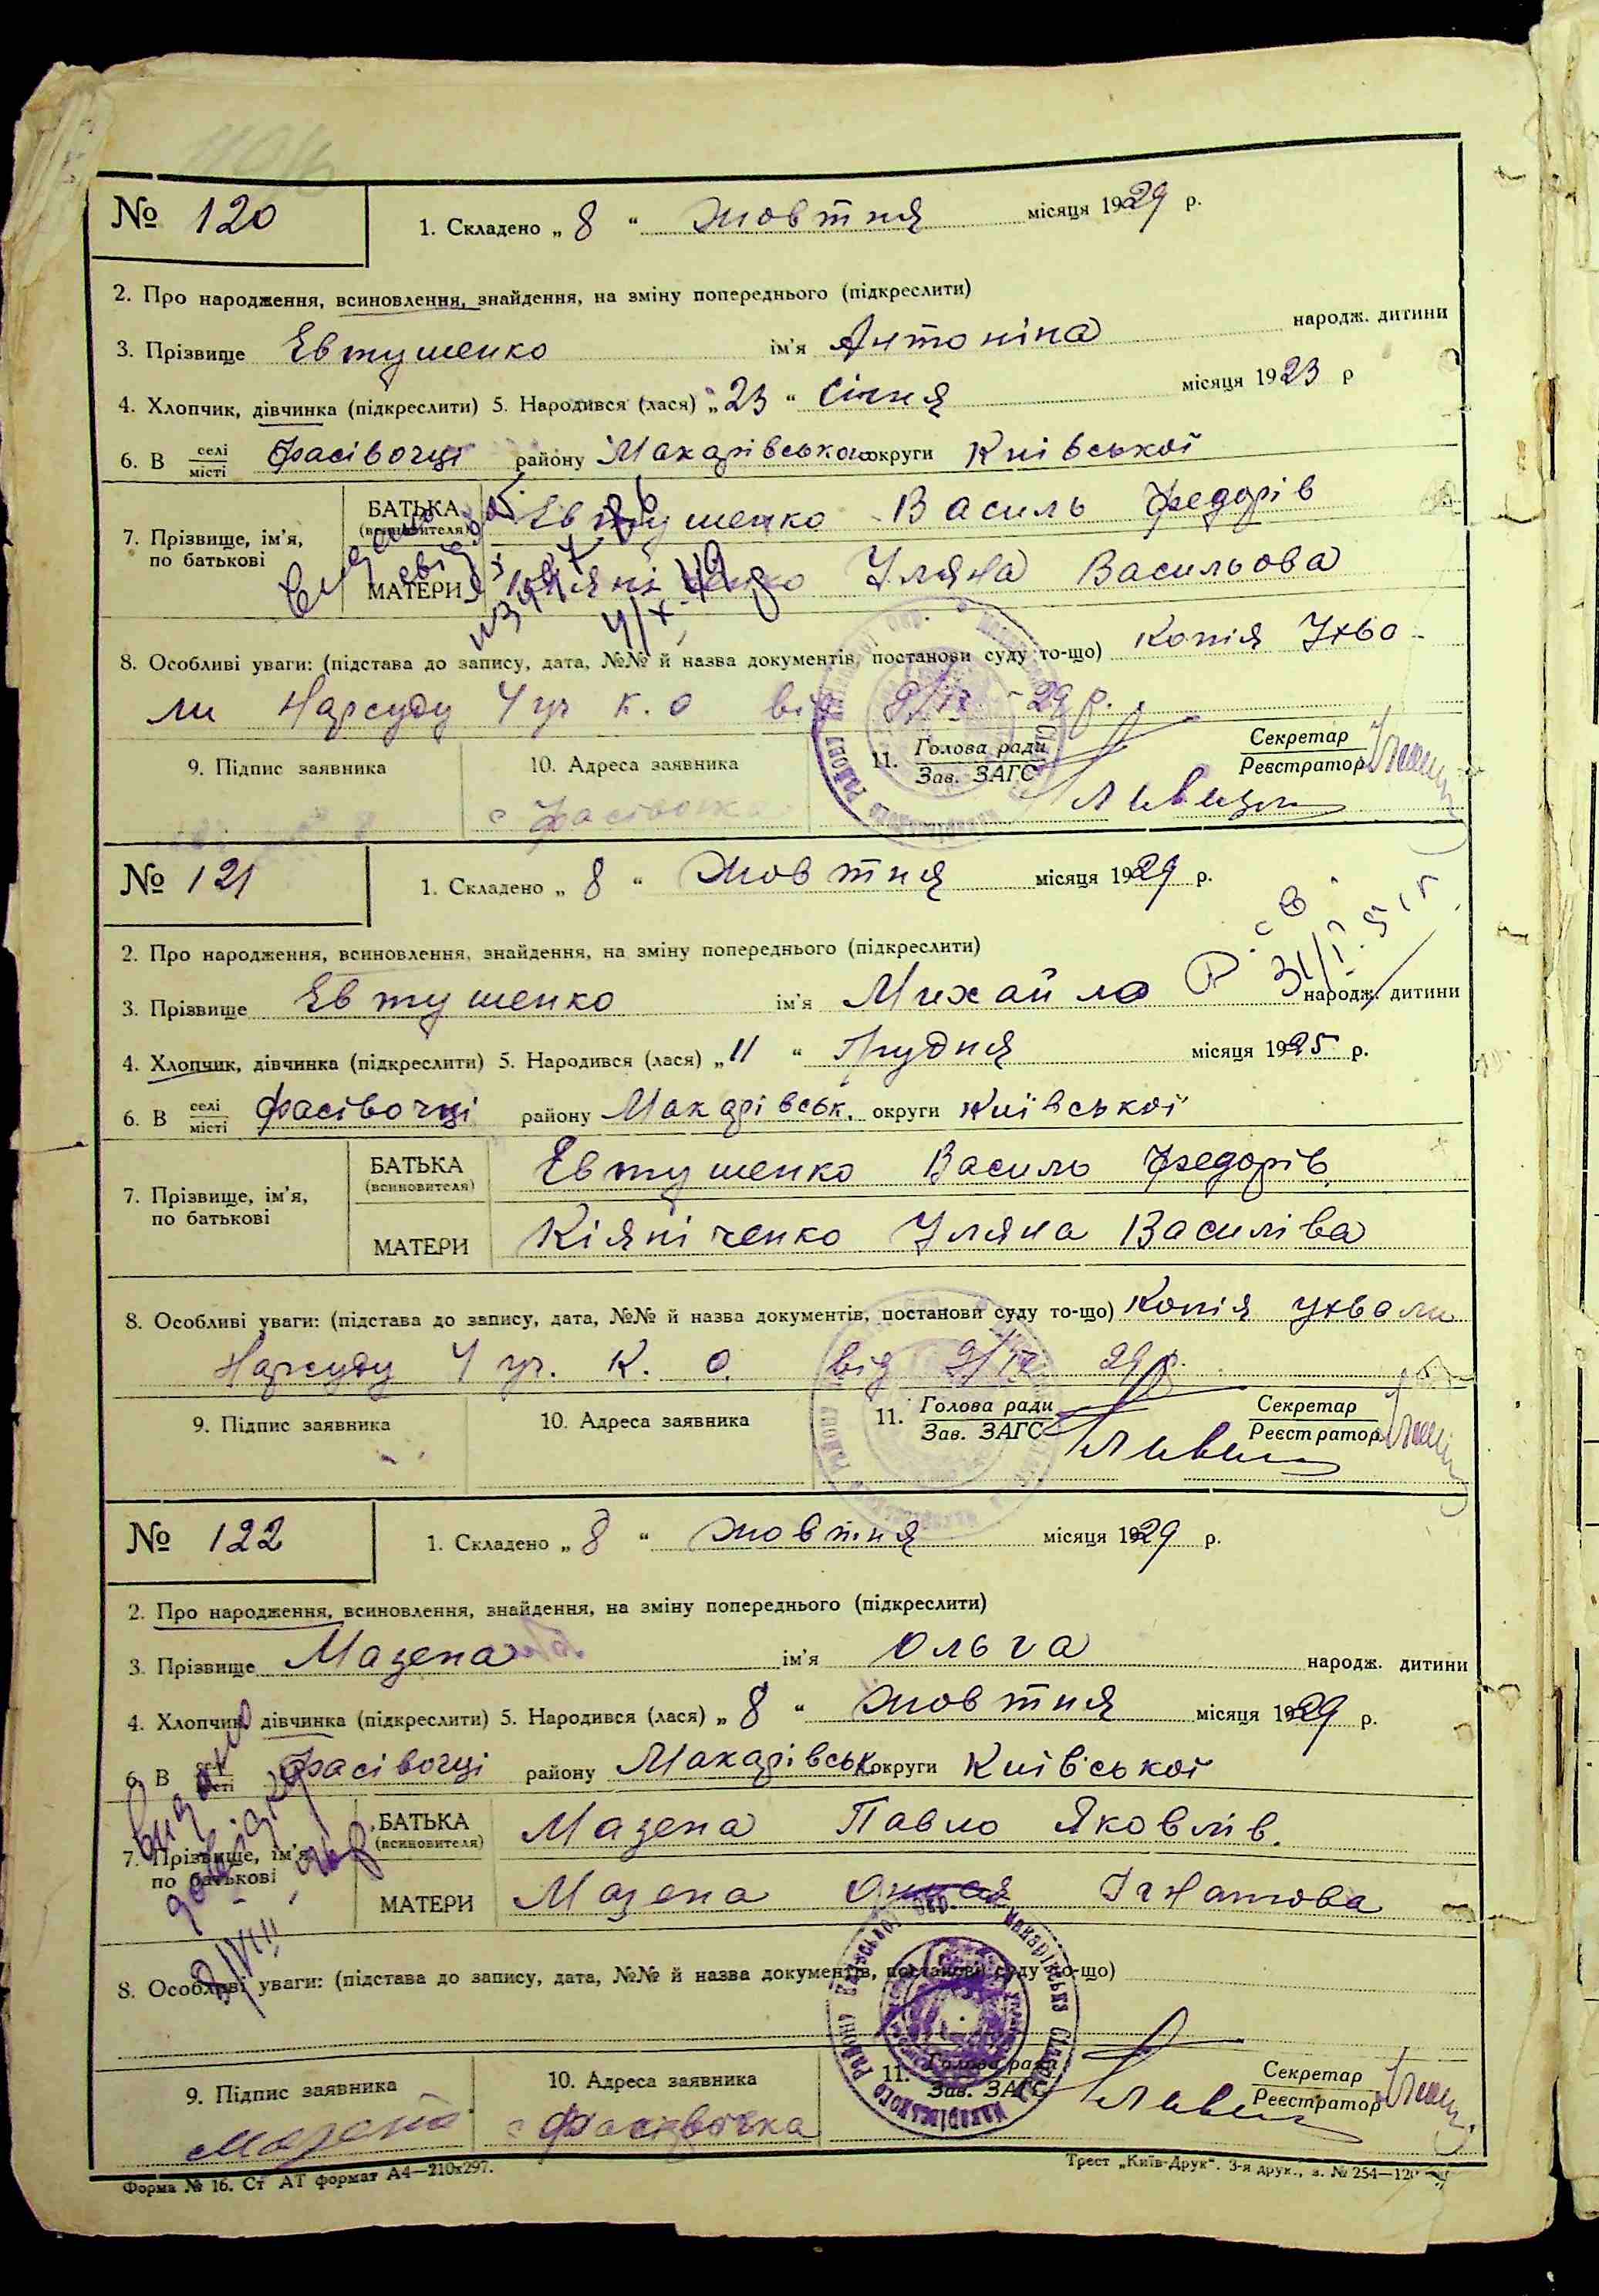 № 120
1. Складено „ 8 “ жовтня місяця 1929 р.
2. Про народження, всиновлення, знайдення, на зміну попереднього (підкреслити)
3. Прізвище Евтушенко ім'я Антоніна народж. дитини
4. Хлопчик, дівчинка (підкреслити) 5. Народився (лася) „ 23 “ січня місяця 1923 р
6. В селі місті Фасівочці району Макарівського округи Київської
7. Прізвище, ім'я, по батькові
БАТЬКА (всиновителя) Евтушенко Василь Федорів
МАТЕРИ Кіяніченко Уляна Васильова
8. Особливі уваги: (підстава до запису, дата, №№ й назва документів, постанови суду то-що) Копія Ухва-
ли Нарсуду 4 уч К. О від 9/IX - 29 р.
9. Підпис заявника
10. Адреса заявника
с Фасівочка
11. Голова ради Зав. ЗАГС
Секретар Реєстратор
№ 121
1. Складено „ 8 “ Жовтня місяця 1929 р.
2. Про народження, всиновлення, знайдення, на зміну попереднього (підкреслити)
3. Прізвище Евтушенко ім'я Михайло народж. дитини
4. Хлопчик, дівчинка (підкреслити) 5. Народився (лася) „ 11 “ Грудня місяця 1925 р.
6. В селі місті Фасівочці району Макарівськ. округи Київської
7. Прізвище, ім'я, по батькові
БАТЬКА (всиновителя) Евтушенко Василь Федорів
МАТЕРИ Кіяніченко Уляна Василіва
8. Особливі уваги: (підстава до запису, дата, №№ й назва документів, постанови суду то-що) Копія ухвали
Нарсуду 4 уч. К. О. від 9/IX 29 р.
9. Підпис заявника
10. Адреса заявника
11. Голова ради Зав. ЗАГС
Секретар Реєстратор
№ 122
1. Складено „ 8 “ жовтня місяця 1929 р.
2. Про народження, всиновлення, знайдення, на зміну попереднього (підкреслити)
3. Прізвище Мазепа ім'я Ольга народж. дитини
4. Хлопчик, дівчинка (підкреслити) 5. Народився (лася) „ 8 “ жовтня місяця 1929 р.
6. В селі місті Фасівочці району Макарівськ округи Київської
7. Прізвище, ім'я, по батькові
БАТЬКА (всиновителя) Мазепа Павло Яковлів.
МАТЕРИ Мазепа Ігнатова
8. Особливі уваги: (підстава до запису, дата, №№ й назва документів, постанови суду то-що)
9. Підпис заявника
Мазепа
10. Адреса заявника
с Фасівочка
11. Голова ради Зав. ЗАГС
Секретар Реєстратор
Форма № 16. Ст АТ формат А4—210х297.
Трест „Київ-Друк“. 3-я друк., з. № 254—12